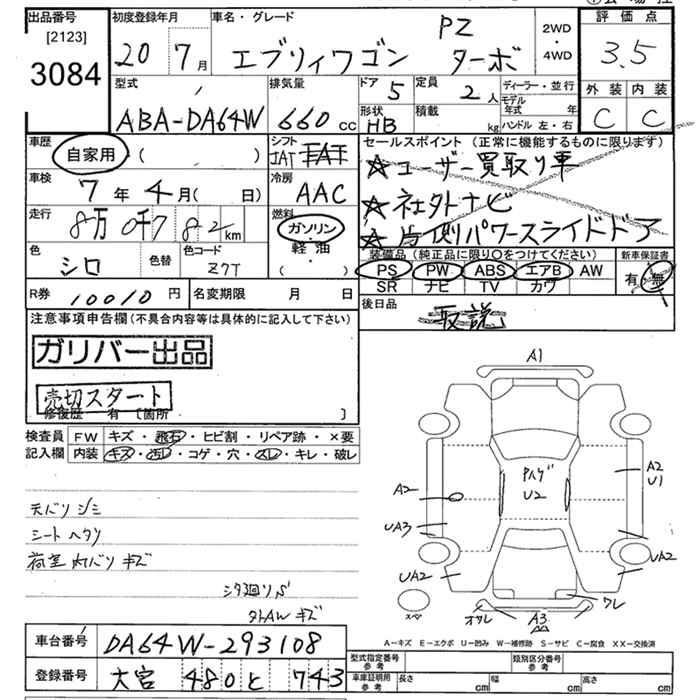 出品番号 初度登録年月 車名・グレード 評価点
[2123] PZ 2WD
3084 20 7月 エブリィワゴン ターボ ・4WD 3.5
型式 排気量 ドア 5 定員 2人 ディーラー・並行 外装 内装
モデル年式 年
ABA-DA64W 660cc 形状 HB 積載 kg ハンドル 左・右 C C
車歴 自家用 ( ) シフト IAT FAT セールスポイント (正常に機能するものに限ります)
☆ユーザー買取り車
車検 7年4月( 日) 冷房 AAC
☆社外ナビ
走行 8万0千782km 燃料 ガソリン・軽油・( )
☆片側パワースライドドア
色 シロ 色替 色コード Z7T
装備品 (純正品に限り○をつけてください) 新車保証書
PS PW ABS エアB AW 有・無
SR ナビ TV カワ
R券 10010円 名変期限 月 日
後日品 取説
注意事項申告欄 (不具合内容等は具体的に記入して下さい)
ガリバー出品
売切スタート
修復歴 有 [箇所 ]
検査員記入欄 FW キズ・飛石・ヒビ割・リペア跡・×要
内装 キズ・汚レ・コゲ・穴・スレ・キレ・破レ
天バリ シミ
シート ヘタリ
荷室 内バリ キズ
シタ廻りパ
タトAW キズ
A1
A2
U1
Pハゲ
U2
A2
UA3
UA2
UA2
スペ
オサレ
A3
ワレ
A-キズ E-エクボ U-凹み W-補修跡 S-サビ C-腐食 XX-交換済
車台番号 DA64W-293108
登録番号 大宮 480 と 743
型式指定番号 参考 類別区分番号 参考
車庫証明用 参考 長さ cm 幅 cm 高さ cm